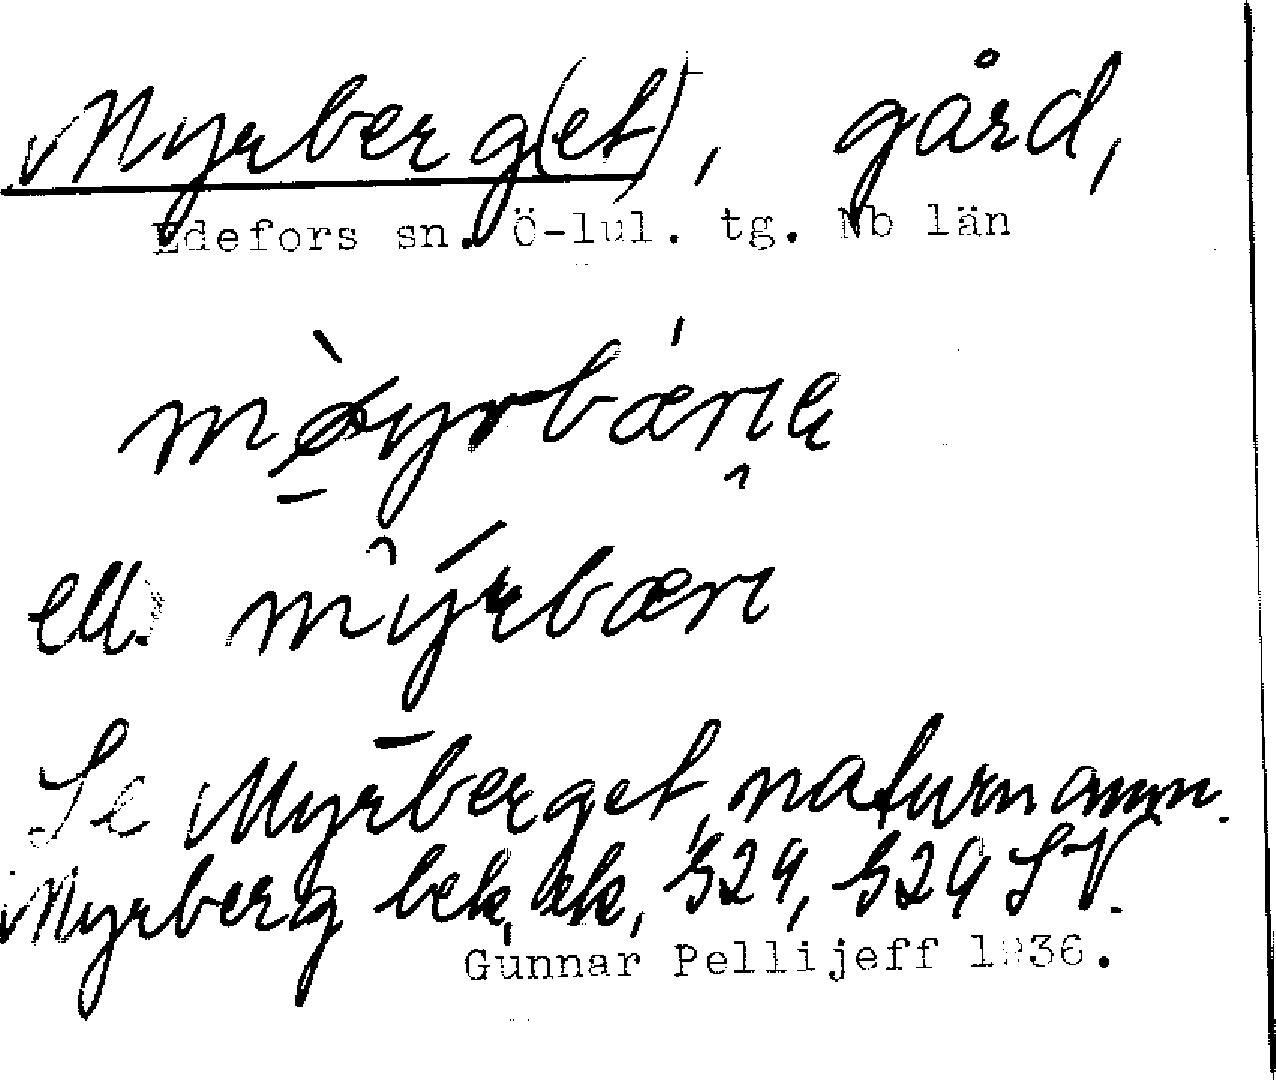 Myrberg(et), gård,
Edefors sn. Ö-lul. tg. Nb län
mø̀yrbærıe
ell. mýrbærı
Se Myrberget, naturnamn.
Myrberg bek, ek, 529, 529 SV.
Gunnar Pellijeff 1936.